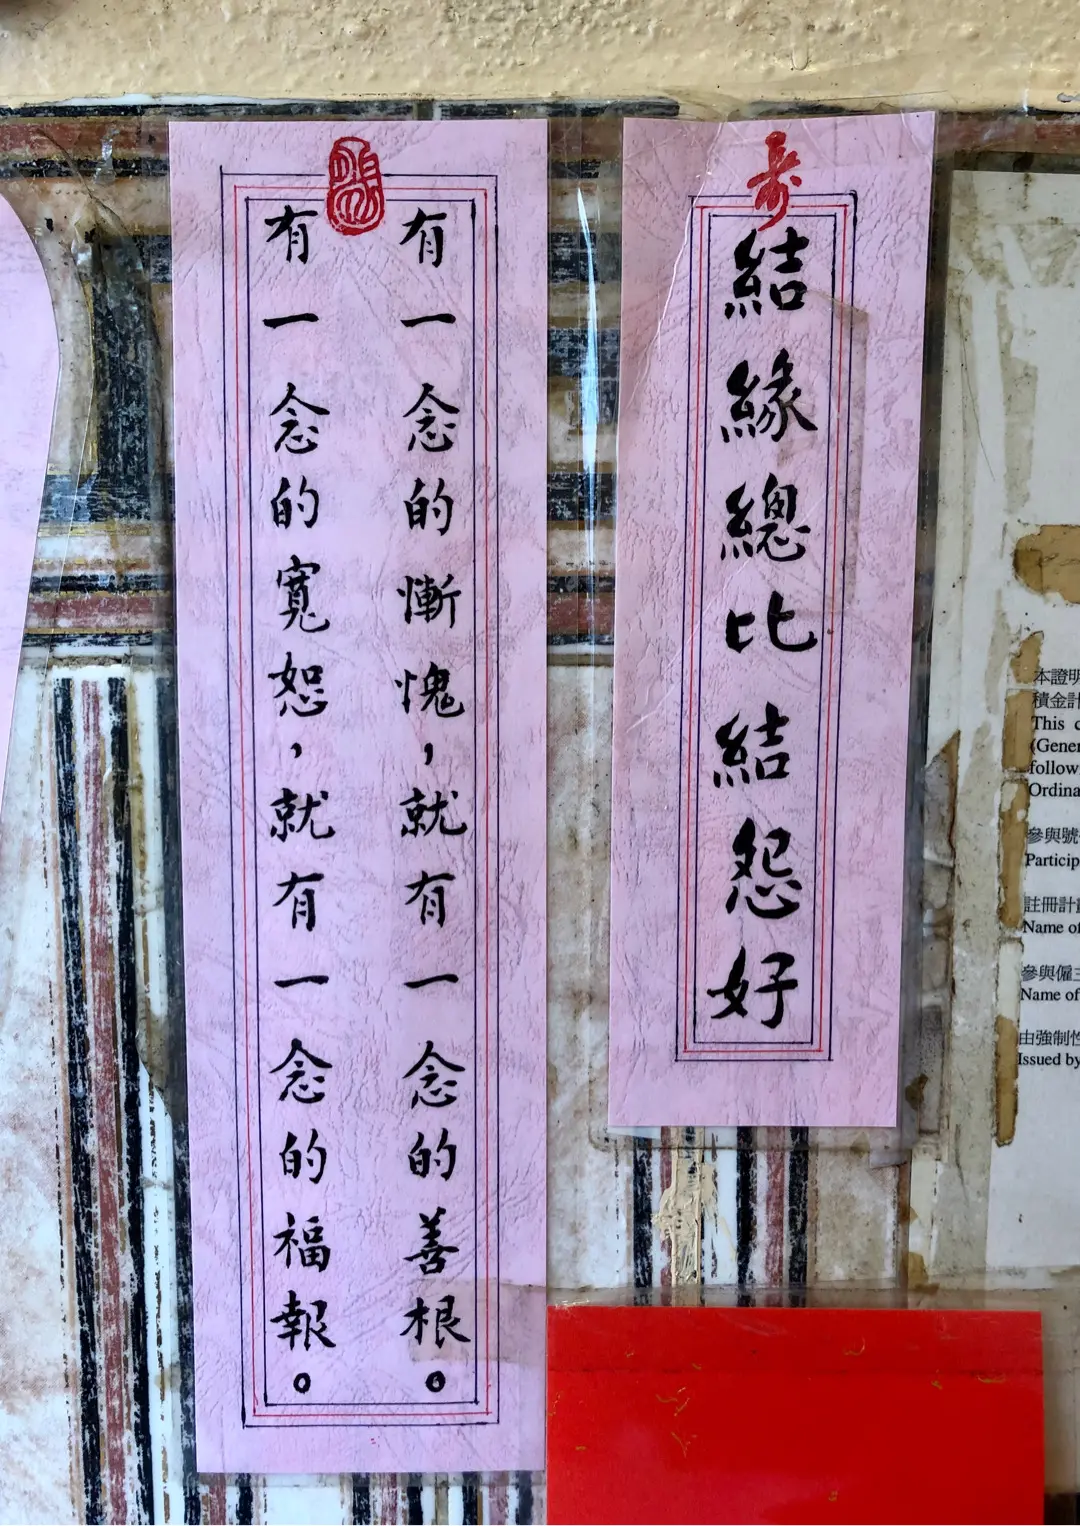 壽
結緣總比結怨好
有一念的慚愧，就有一念的善根。
有一念的寬恕，就有一念的福報。
本證明
積金計
This c
(Gener
follow
Ordina
參與號
Particip
註冊計
Name of
參與僱主
Name of
由強制性
Issued by